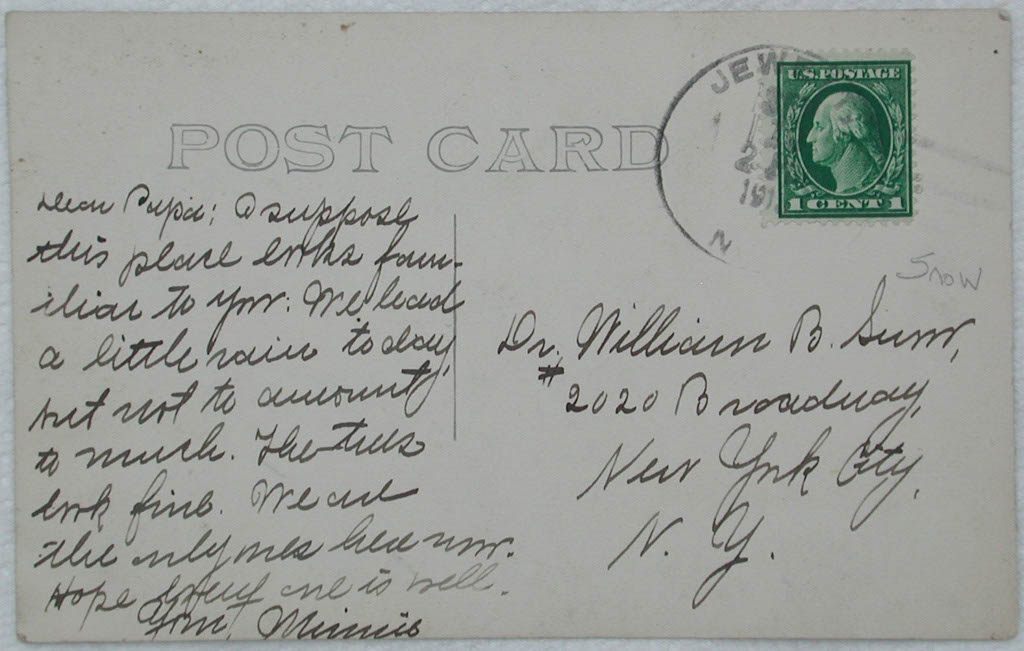 POST CARD
JEWE
2
191
N
U.S. POSTAGE
1 CENT 1
Snow
Dear Papa; I suppose
this place looks fam-
iliar to you. We had
a little rain today,
but not to amount
to much. The trees
look fine. We are
the only ones here now.
Hope every one is well.
Your, Minnie
Dr. William B. Snow,
# 2020 Broadway,
New York City,
N. Y.